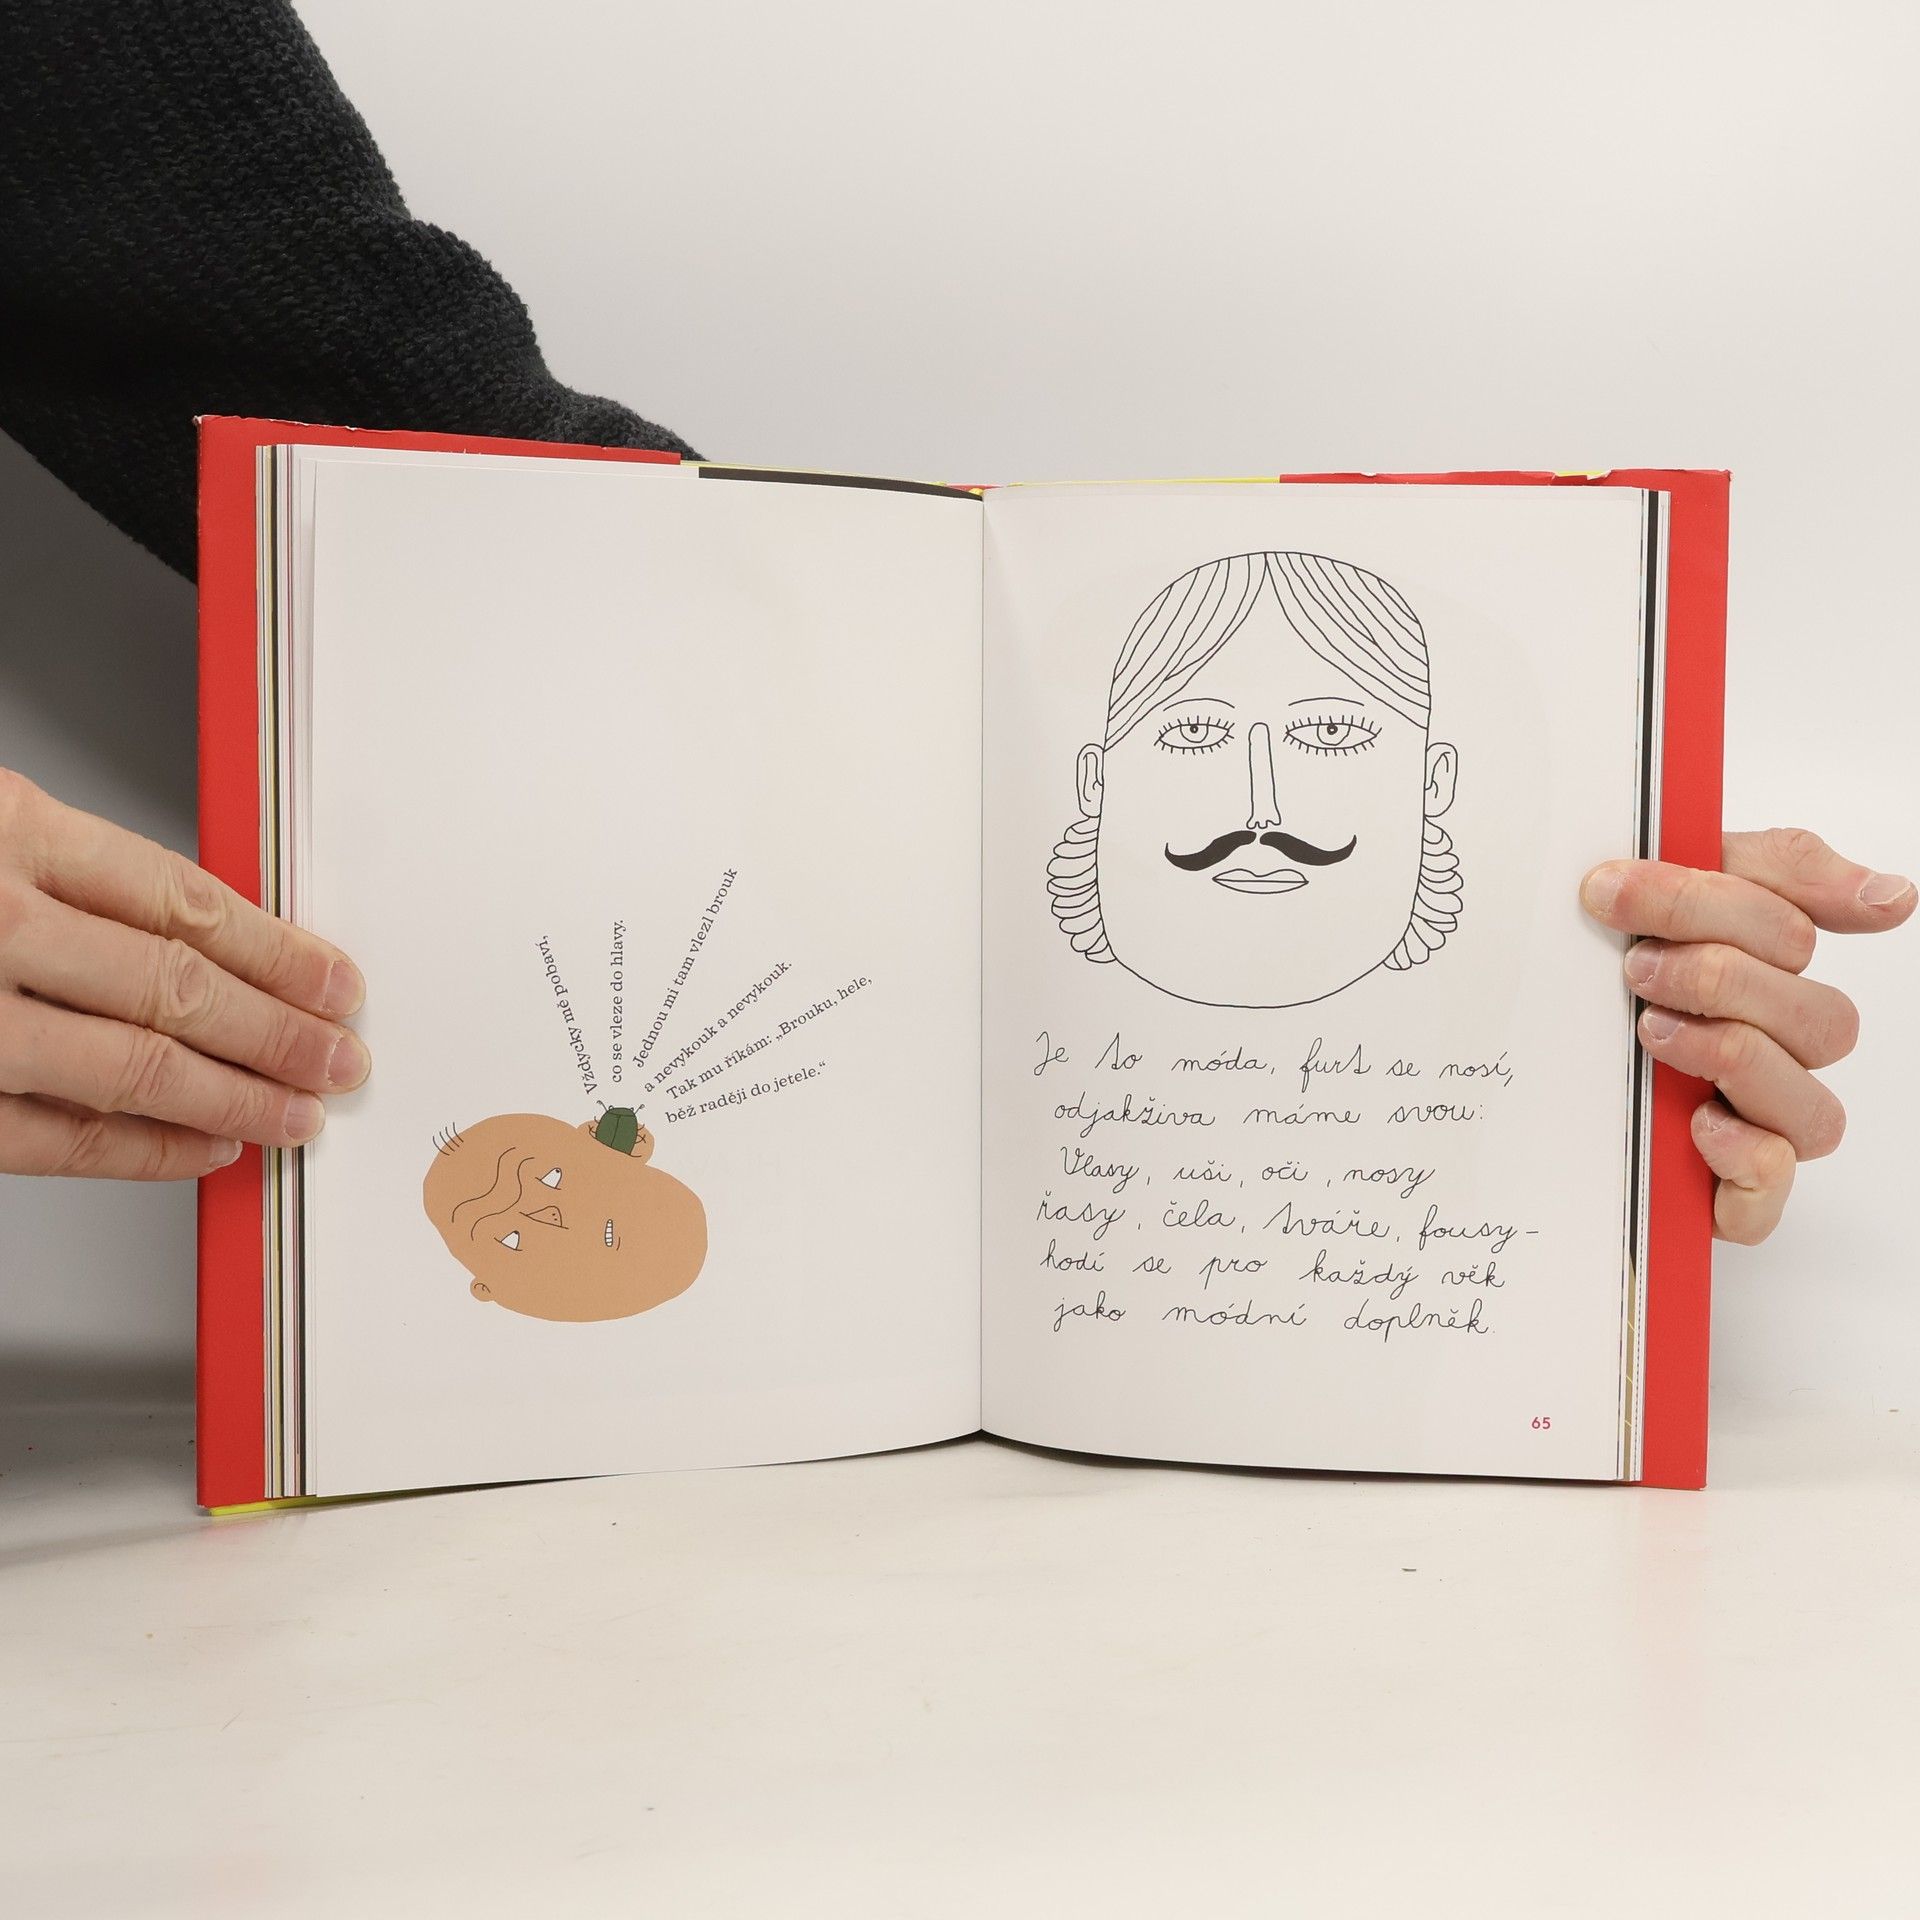 Vždycky mě pobaví,
co se vleze do hlavy.
Jednou mi tam vlezl brouk
a nevykouk a nevykouk.
Tak mu říkám: „Brouku, hele,
běž raději do jetele.“
Je to móda, furt se nosí,
odjakživa máme svou:
Vlasy, uši, oči, nosy
řasy, čela, tváře, fousy–
hodí se pro každý věk
jako módní doplněk.
65